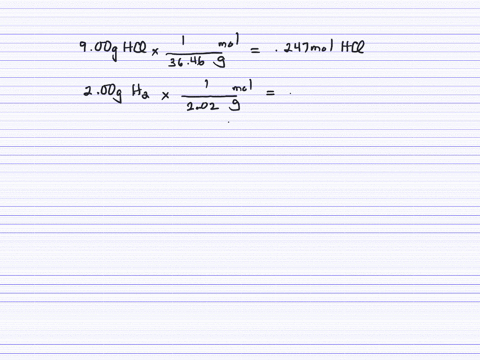 9.00g HCl × 1 mol / 36.46 g = .247 mol HCl
2.00g H₂ × 1 mol / 2.02 g = .